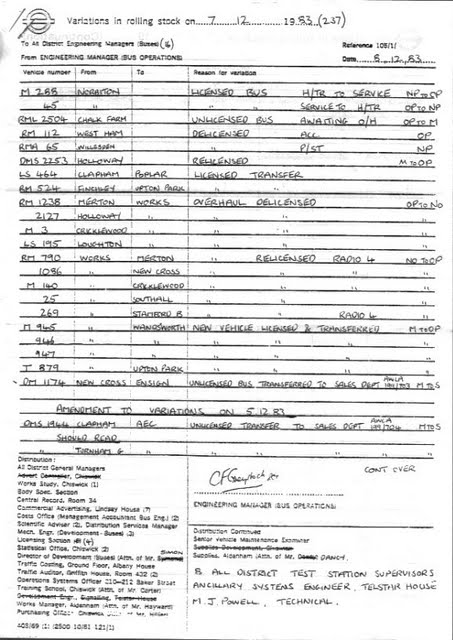 Variations in rolling stock on 7 12 1983 (237)
To All District Engineering Managers (Buses) (16)
Reference 105/1/
From ENGINEERING MANAGER (BUS OPERATIONS)
Date 8.12.83
Vehicle number From To Reason for variation
M 288 NORBITON LICENSED BUS H/TR TO SERVICE NP TO OP
45 " " SERVICE TO H/TR OP TO NP
RML 2504 CHALK FARM UNLICENSED BUS AWAITING O/H OP TO M
RM 112 WEST HAM DELICENSED ACC OP
RMA 65 WILLESDEN " P/ST NP
DMS 2253 HOLLOWAY RELICENSED M TO OP
LS 464 CLAPHAM POPLAR LICENSED TRANSFER
RM 524 FINCHLEY UPTON PARK " "
RM 1238 MERTON WORKS OVERHAUL DELICENSED OP TO NO
2127 HOLLOWAY " " " "
M 3 CRICKLEWOOD " " " "
LS 195 LOUGHTON " " " "
RM 790 WORKS MERTON " RELICENSED RADIO 4 NO TO OP
1086 " NEW CROSS " " "
M 140 " CRICKLEWOOD " " "
25 " SOUTHALL " " "
269 " STAMFORD B " " RADIO 4 "
M 945 " WANDSWORTH NEW VEHICLE LICENSED & TRANSFERRED M TO OP
946 " " " " "
947 " " " " "
T 879 " UPTON PARK " " "
DM 1174 NEW CROSS ENSIGN UNLICENSED BUS TRANSFERRED TO SALES DEPT 199/703 M TO S
AMENDMENT TO VARIATIONS ON 5.12.83
DMS 1944 CLAPHAM AEC UNLICENSED TRANSFER TO SALES DEPT 199/704 M TO S
SHOULD READ
" TURNHAM G
CONT OVER
Distribution:
All District General Managers
Advert Controller, Chiswick
Works Study, Chiswick (1)
Body Spec. Section
Central Record, Room 34
Commercial Advertising, Lindsay House (7)
Costs Office (Management Accountant Bus Eng.) (2)
Scientific Adviser (2), Distribution Services Manager
Mech. Engr. (Development - Buses) (2)
Licensing Section (4)
Statistical Office, Chiswick (2)
Director of Development (Buses) (Attn. of Mr. SIMON
Traffic Costing, Ground Floor, Albany House
Traffic Auditor, Griffith House, Room 432 (2)
Operations Systems Officer 210-212 Baker Street
Training School, Chiswick (Attn. of Mr. Carter)
Development Engr., Signalling, Telstar House
Works Manager, Aldenham (Attn. of Mr. Hayward)
Purchasing Officer
405/69 (1) (2500 10/81 121/1)
ENGINEERING MANAGER (BUS OPERATIONS)
Distribution Continued
Senior Vehicle Maintenance Examiner
Supplies Development, Chiswick
Supplies, Aldenham (Attn. of Mr. DANCY.
B. ALL DISTRICT TEST STATION SUPERVISORS
ANCILLARY SYSTEMS ENGINEER, TELSTAR HOUSE
M. J. POWELL, TECHNICAL.